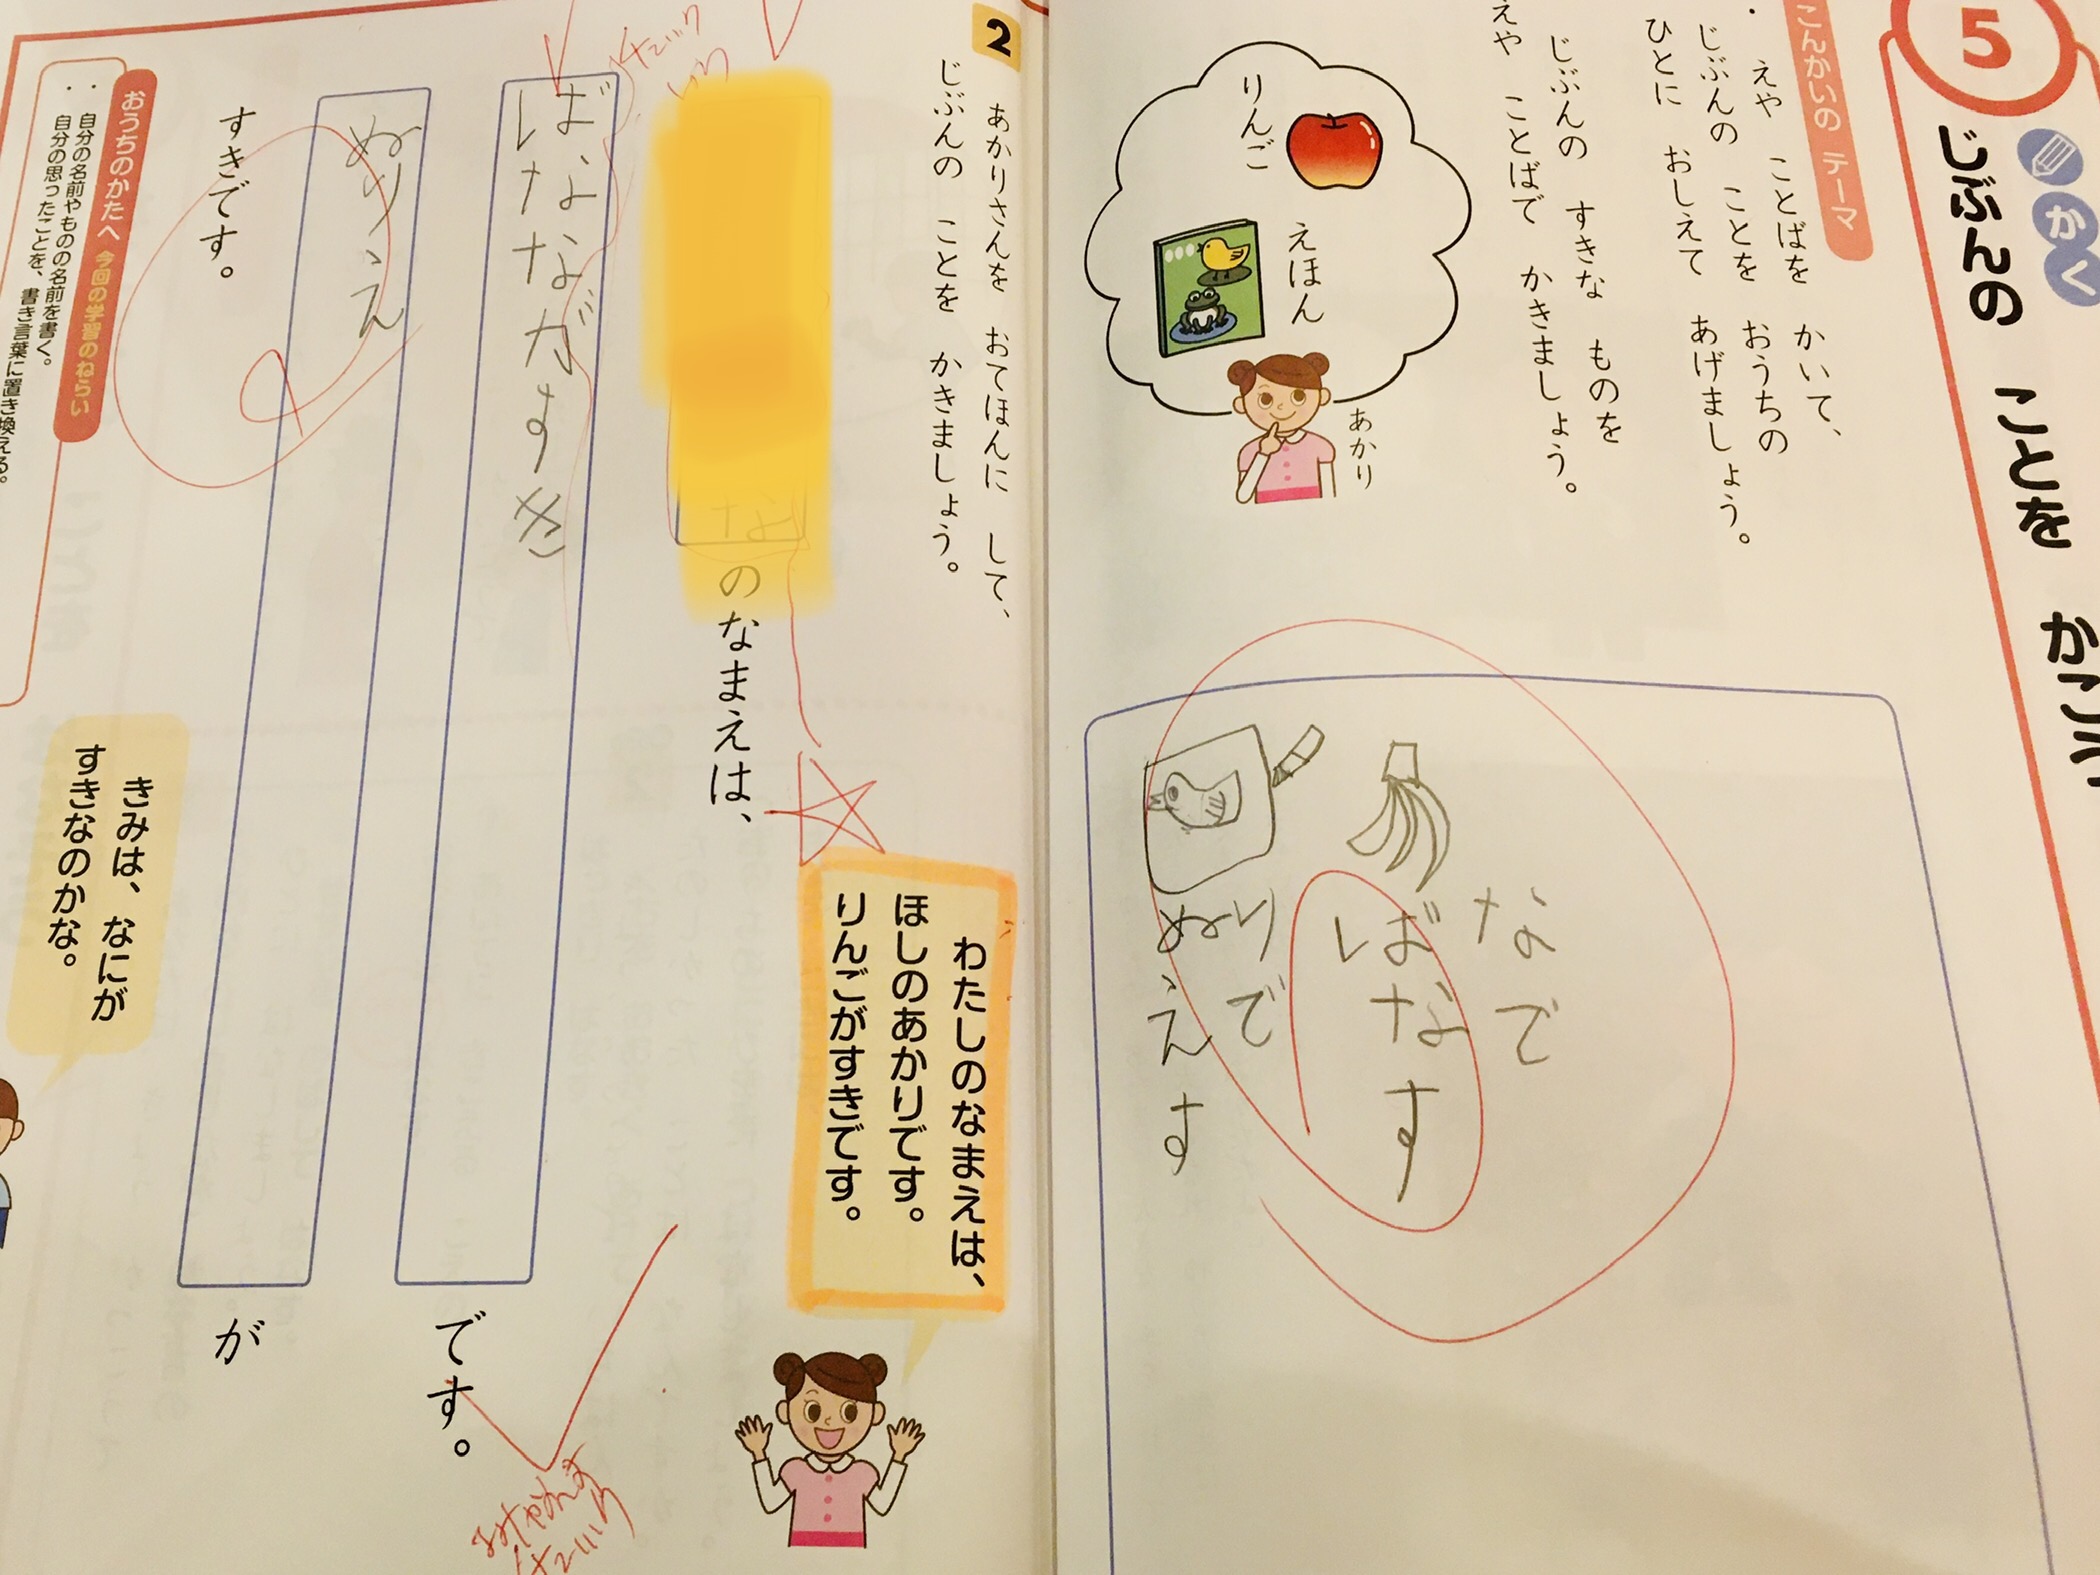 5
かく
じぶんの ことを かこう
こんかいの テーマ
・えや ことばを かいて、
じぶんの ことを おうちの
ひとに おしえて あげましょう。
じぶんの すきな ものを
えや ことばで かきましょう。
りんご
えほん
あかり
なで
ばなす
りで
ぬえす
2
あかりさんを おてほんに して、
じぶんの ことを かきましょう。
わたしのなまえは、
ほしのあかりです。
りんごがすきです。
な
のなまえは、
ばなながすき
です。
ぬりえ
が
すきです。
きみは、なにが
すきなのかな。
おうちのかたへ 今回の学習のねらい
・自分の名前やものの名前を書く。
・自分の思ったことを、書き言葉に置き換える。